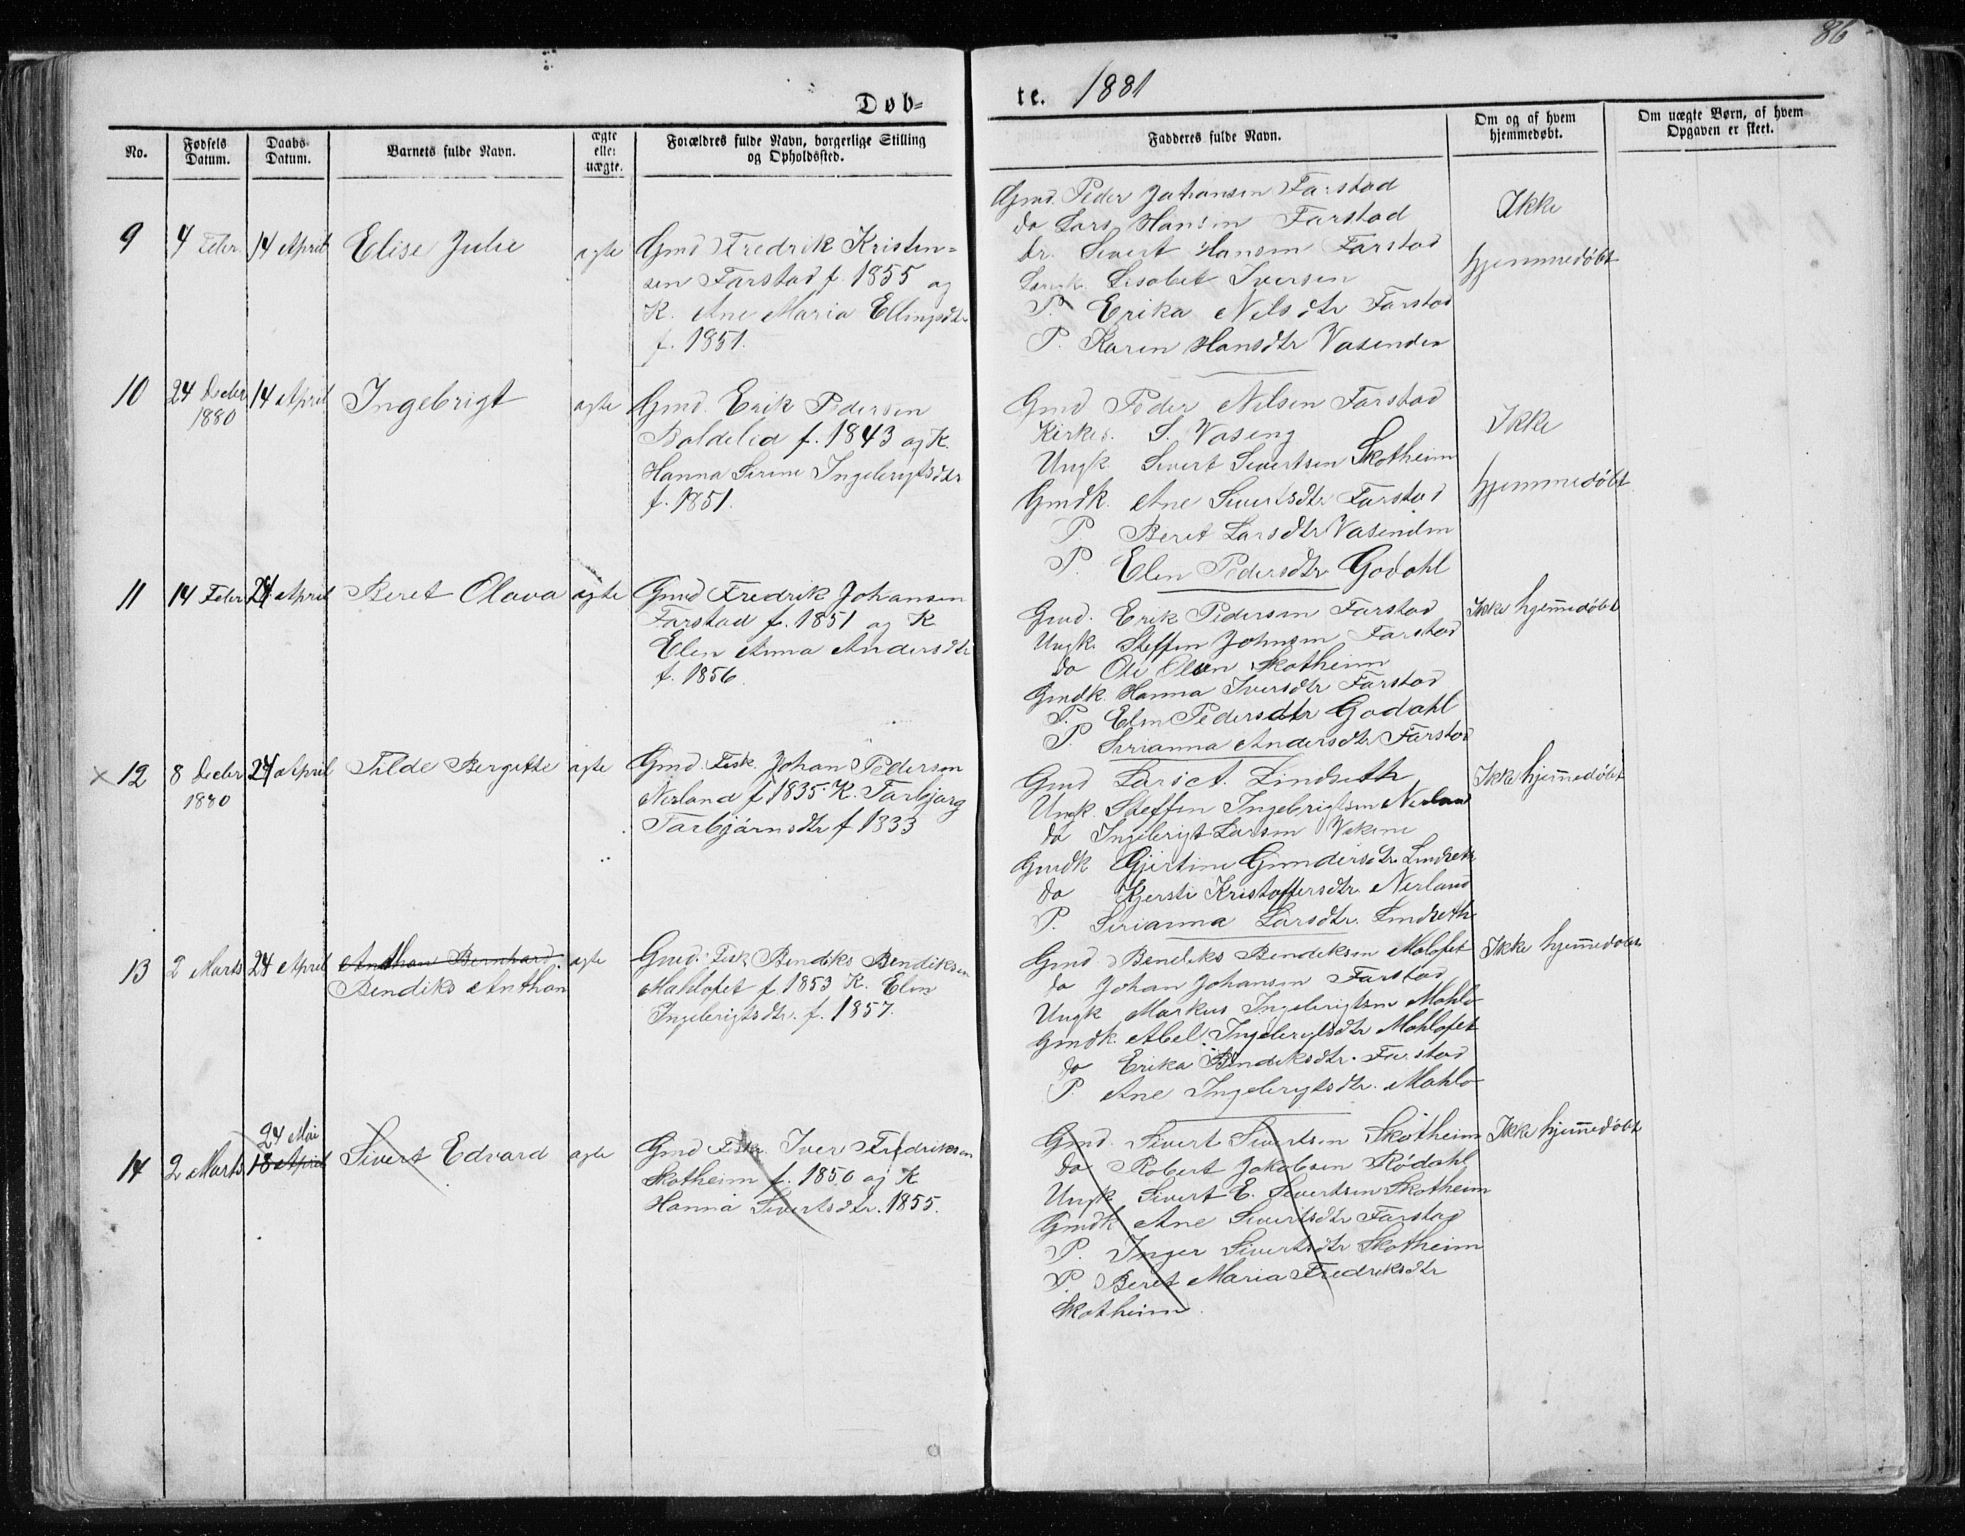 86
Døb-
te. 1881
No.
Fødsels Datum.
Daabs Datum.
Barnets fulde Navn.
ægte eller uægte.
Forældres fulde Navn, borgerlige Stilling
og Opholdssted.
Fadderes fulde Navn.
Om og af hvem
hjemmedøbt.
Om uægte Børn, af hvem
Opgaven er skeet.
9 4 Feber. 14 April Elise Julie ægte
Gmd Fredrik Kristen-
sen Farstad f. 1855 og
K. Ane Maria Ellingsdtr
f. 1851.
Gmd. Peder Johansen Farstad
do Lars Hansen Farstad
do. Sivert Hansen Farstad
Lisabet Iversen
P. Erika Nilsdtr Farstad
P. Karen Hansdtr Vasenden
Ikke
hjemmedøbt
10 24 Decbr 1880 14 April Ingebrigt ægte
Gmd. Erik Pedersen
Boldelia f. 1843 og K.
Hanna Serine Ingebrigtsdtr
f. 1851.
Gmd Peder Nilsen Farstad
Kirkes. S. Vaseng
Ungk. Sivert Sivertsen Skotheim
Gmdk. Ane Sivertsdtr Farstad
P. Beret Larsdtr Vasenden
P. Elen Pedersdtr Godahl
Ikke
hjemmedøbt
11 14 Feber 24 April Beret Olava ægte
Gmd Fredrik Johansen
Farstad f. 1851 og K
Elen Anna Andersdtr
f. 1856.
Gmd. Erik Pedersen Farstad
Ungk. Steffen Johnsen Farstad
do Ole Olsen Skotheim
Gmdk. Hanna Iversdtr Farstad
P. Elen Pedersdtr Godahl
P. Serianna Andersdtr Farstad
Ikke hjemmedøbt
x 12 8 Decbr 1880 24 April Tilde Bergitte ægte
Gmd Fisk. Johan Pedersen
Nerland f. 1835. K. Tarbjørg
Tarbjørnsdtr f 1833
Gmd Lars A. Lindseth
Ungk. Steffen Ingebrigtsen Nerland
do Ingebrigt Larsen Vikene
Gmdk Gjertine Gundersdtr Lindseth
do Kjersti Kristoffersdtr. Nerland
P. Serianna Larsdtr. Lindseth
Ikke hjemmedøbt
13 2 Marts 24 April Anthon Bernhard. ægte
Bendiks Anthon
Gmd. Fisk Bendiks Bendiksen
Mahlofet f. 1853 K. Elen
Ingebrigtsdtr. f. 1857.
Gmd. Bendiks Bendiksen Malofet
do Johan Johansen Farstad
Ungk Markus Ingebrigtsen Mahlo
Gmdk. Abel Ingebrigtsdtr Mahlofet
do Erika Bendiksdtr. Farstad
P. Ane Ingebrigtsdtr. Mahlo
Ikke hjemmedøbt
24 Mai
14 2 Marts 18 April Sivert Edvard ægte
Gmd Fisk. Iver Fredriksen
Skotheim f. 1850 og K
Hanna Sivertsdtr. 1855.
Gmd. Sivert Sivertsen Skotheim
do Robert Jakobsen Rødahl
Ungk Sivert E. Sivertsen Skotheim
Gmdk Ane Sivertsdtr Farstad
P. Inger Sivertsdtr Skotheim
P. Beret Maria Fredriksdtr
Skotheim.
Ikke hjemmedøbt